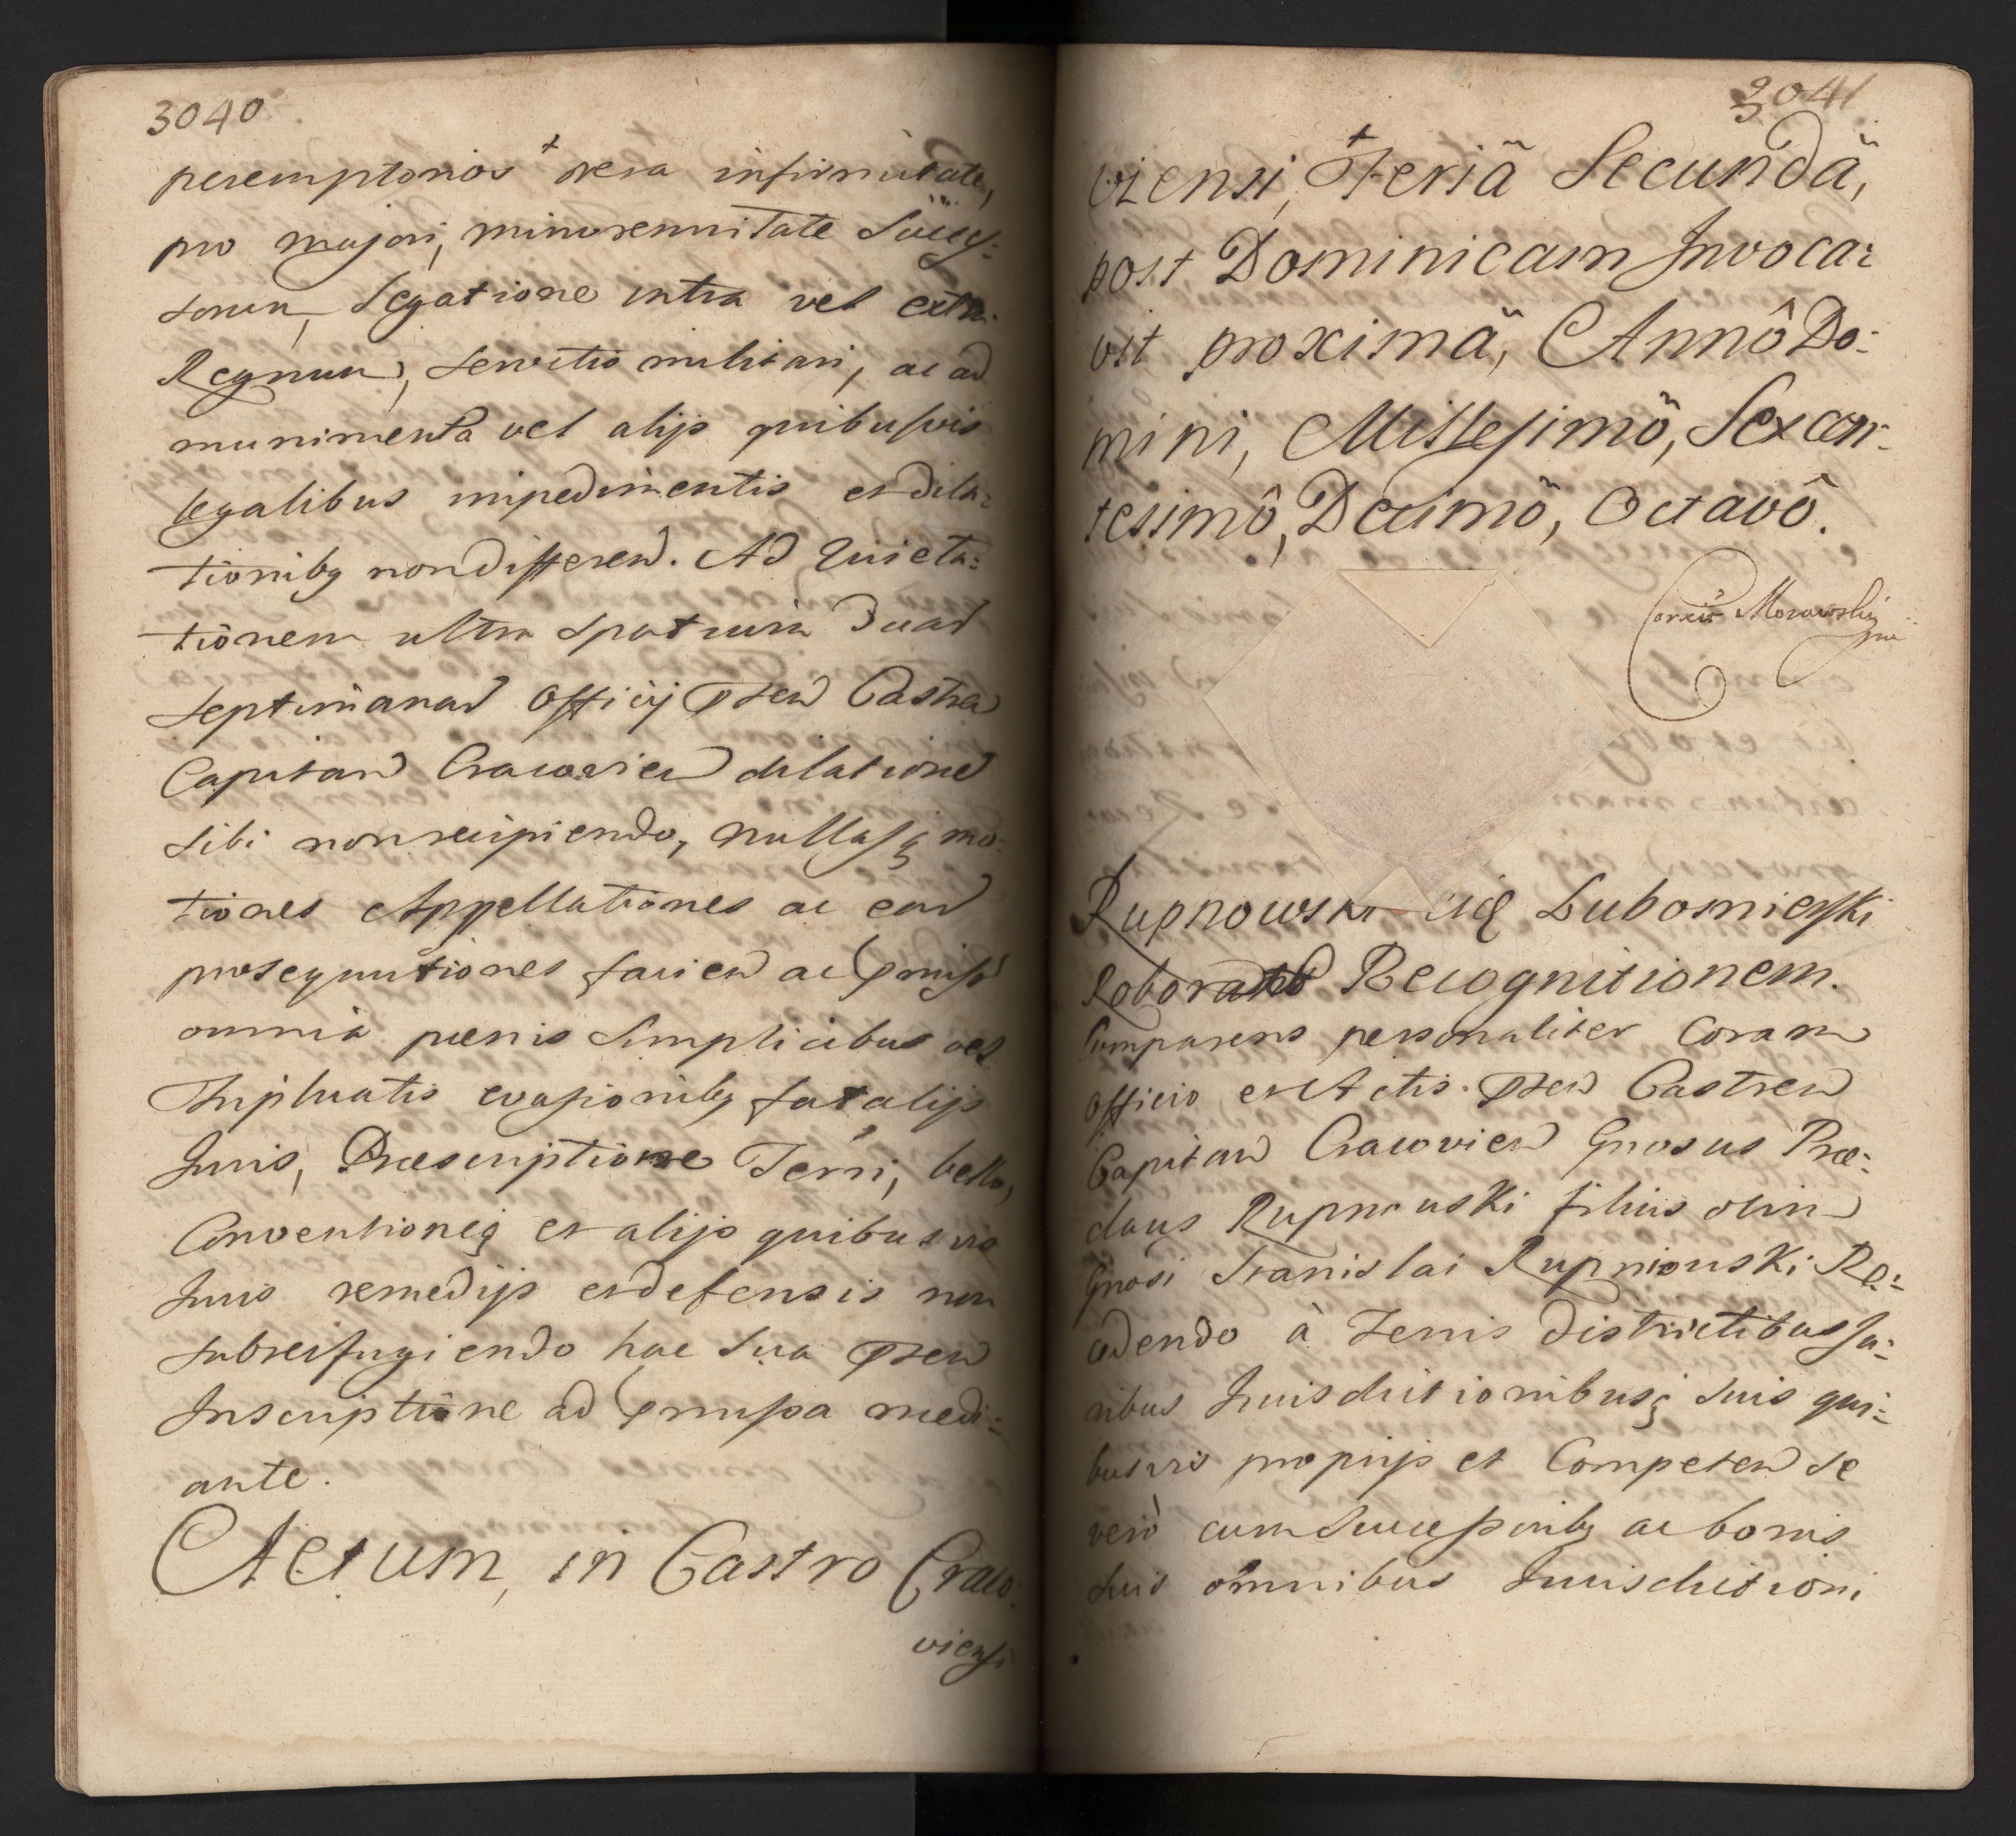 3040
peremptorios + vera infirmitate,
pro majori, minorennitate Succes-
sorum, Legatione intra vel extra
Regnum, servitio militari, ac ad
munimenta vel alijs quibusvis
legalibus impedimentis et dila-
tionibq non differen. Ad Quieta-
tionem ultra spatium Duar
septimanar Officij Pten Castren
Capitan Cracovien dilatione
sibi non recipiendo, nullasq mo-
tiones Appellationes ac ear
prosequutiones facien ac pmiss
omnia pœnis simplicibus vel
Triplicatis evasionibq fatalijs
Juris, Præscriptione Terri, bello,
Conventioneq et alijs quibusvis
Juris remedijs et defensis non
subterfugiendo hac sua Pten
Inscriptione ad pmissa medi-
ante.
Actum, in Castro Craco-
viensi
3041
viensi, + Feriâ Secundâ,
post Dominicam Invoca-
vit proximâ, Annô Do-
mini, Millesimô, Sexcen-
tesimô, Decimô, Octavô.
Correxit Morawski
mp
Rupnowski Lubomierski
Roborat Recognitionem.
Comparens personaliter Coram
Officio et Actis Pten Castren
Capitan Cracovien Gnosus Præ-
claus Rupnouski filius olim
Gnosi Stanislai Rupniouski Re-
cedendo à Terris districtibus Ju-
ribus Jurisdictionibusq suis qui-
busvis proprijs et Competen se
verò cum Successoribq ac bonis
suis omnibus Jurisdictioni